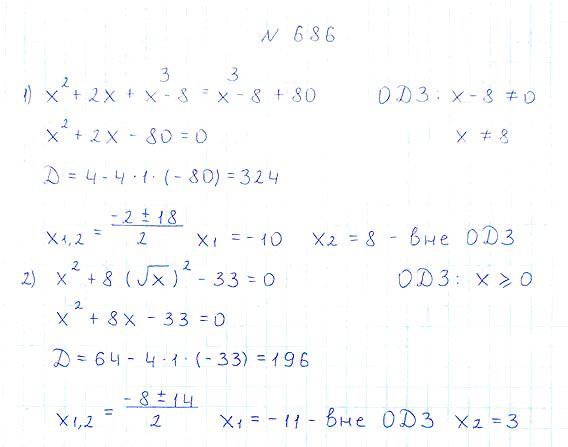 N 686
1) x² + 2x + 3/(x - 8) = 3/(x - 8) + 80 ОДЗ: x - 8 ≠ 0
x² + 2x - 80 = 0 x ≠ 8
D = 4 - 4·1·(-80) = 324
x1,2 = (-2 ± 18)/2 x1 = -10 x2 = 8 - вне ОДЗ
2) x² + 8(√x)² - 33 = 0 ОДЗ: x ⩾ 0
x² + 8x - 33 = 0
D = 64 - 4·1·(-33) = 196
x1,2 = (-8 ± 14)/2 x1 = -11 - вне ОДЗ x2 = 3